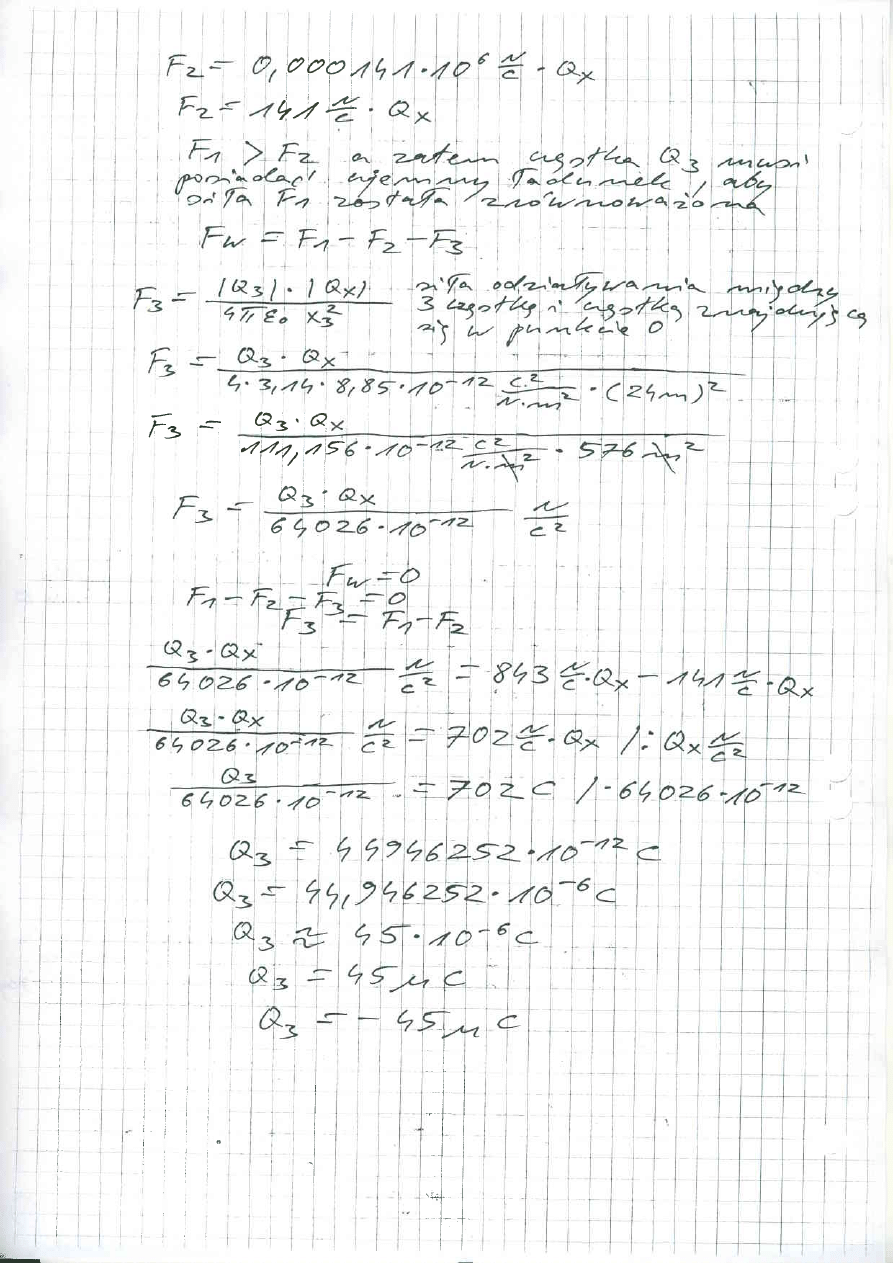 F₂ = 0,000141·10⁶ N/C · Qx
F₂ = 141 N/C · Qx
F₁ > F₂ a zatem cząstka Q₃ musi
posiadać ujemny ładunek, aby
siła F₁ została zrównoważona
Fw = F₁ – F₂ – F₃
F₃ = |Q₃|·|Qx| / 4πε₀ x₃² siła odziaływania między
3 cząstką i cząstką znajdującą
się w punkcie O
F₃ = Q₃·Qx / 4·3,14·8,85·10⁻¹² C²/N·m² · (24m)²
F₃ = Q₃·Qx / 111,156·10⁻¹² C²/N·m² · 576 m²
F₃ = Q₃·Qx / 64026·10⁻¹² N/C²
Fw = 0
F₁ – F₂ – F₃ = 0
F₃ = F₁ – F₂
Q₃·Qx / 64026·10⁻¹² N/C² = 843 N/C·Qx – 141 N/C·Qx
Q₃·Qx / 64026·10⁻¹² N/C² = 702 N/C·Qx /: Qx N/C²
Q₃ / 64026·10⁻¹² = 702 C /·64026·10⁻¹²
Q₃ = 44946252·10⁻¹² C
Q₃ = 44,946252·10⁻⁶ C
Q₃ ≈ 45·10⁻⁶ C
Q₃ = 45 μC
Q₃ = – 45 μC